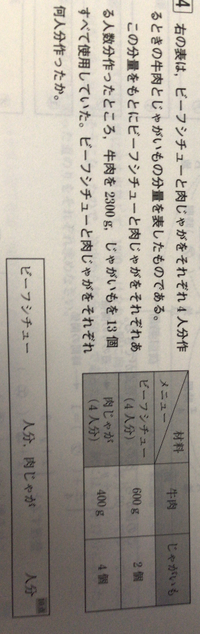 4 右の表は，ビーフシチューと肉じゃがをそれぞれ4人分作
るときの牛肉とじゃがいもの分量を表したものである。
この分量をもとにビーフシチューと肉じゃがをそれぞれあ
る人数分作ったところ，牛肉を2300g，じゃがいもを13個
すべて使用していた。ビーフシチューと肉じゃがをそれぞれ
何人分作ったか。
メニュー 材料 牛肉 じゃがいも
ビーフシチュー
（4人分） 600g 2個
肉じゃが
（4人分） 400g 4個
ビーフシチュー 人分，肉じゃが 人分